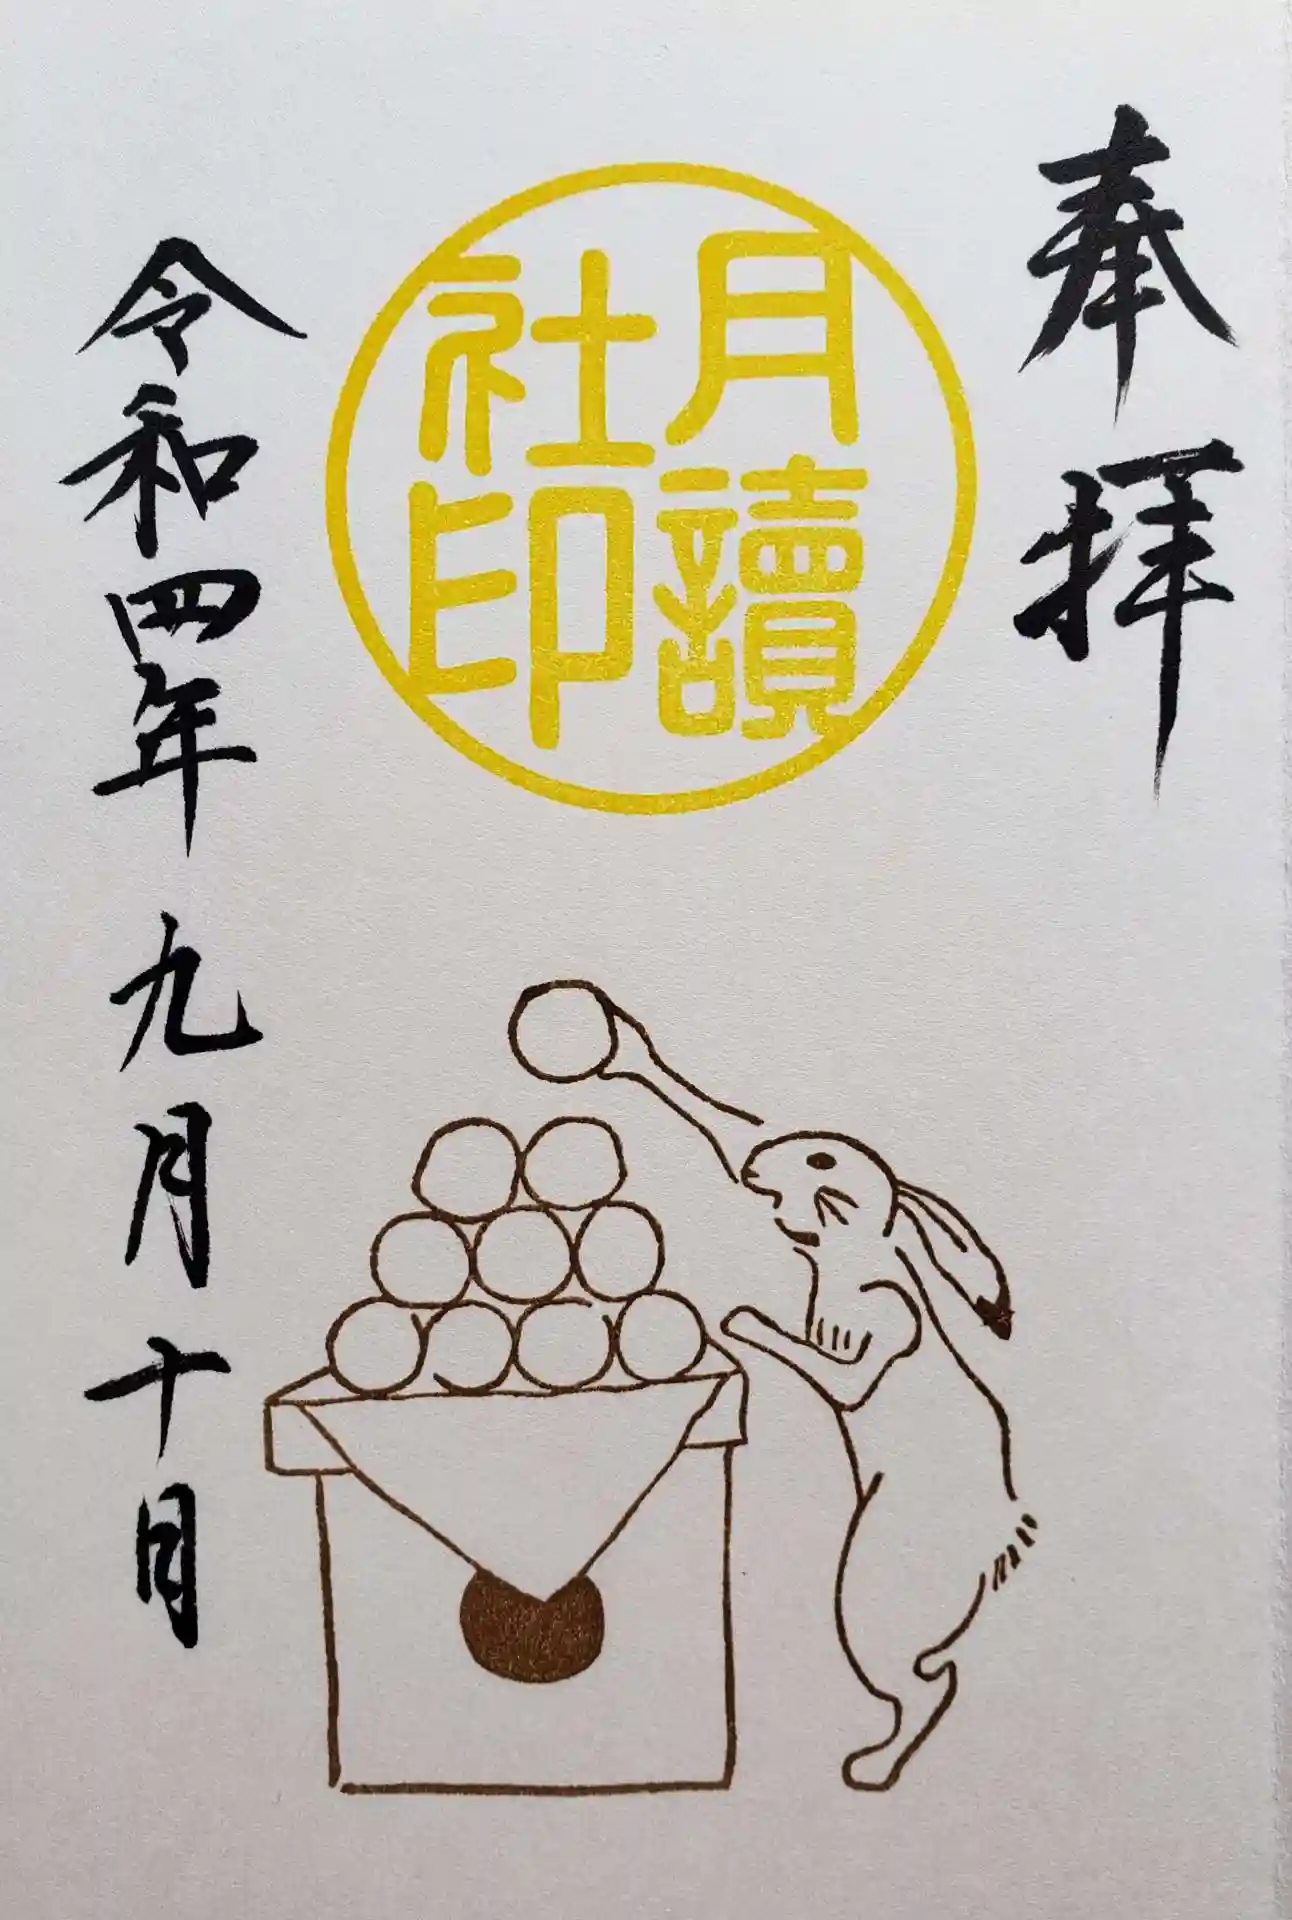 奉拝
月讀
社印
令和四年九月十日